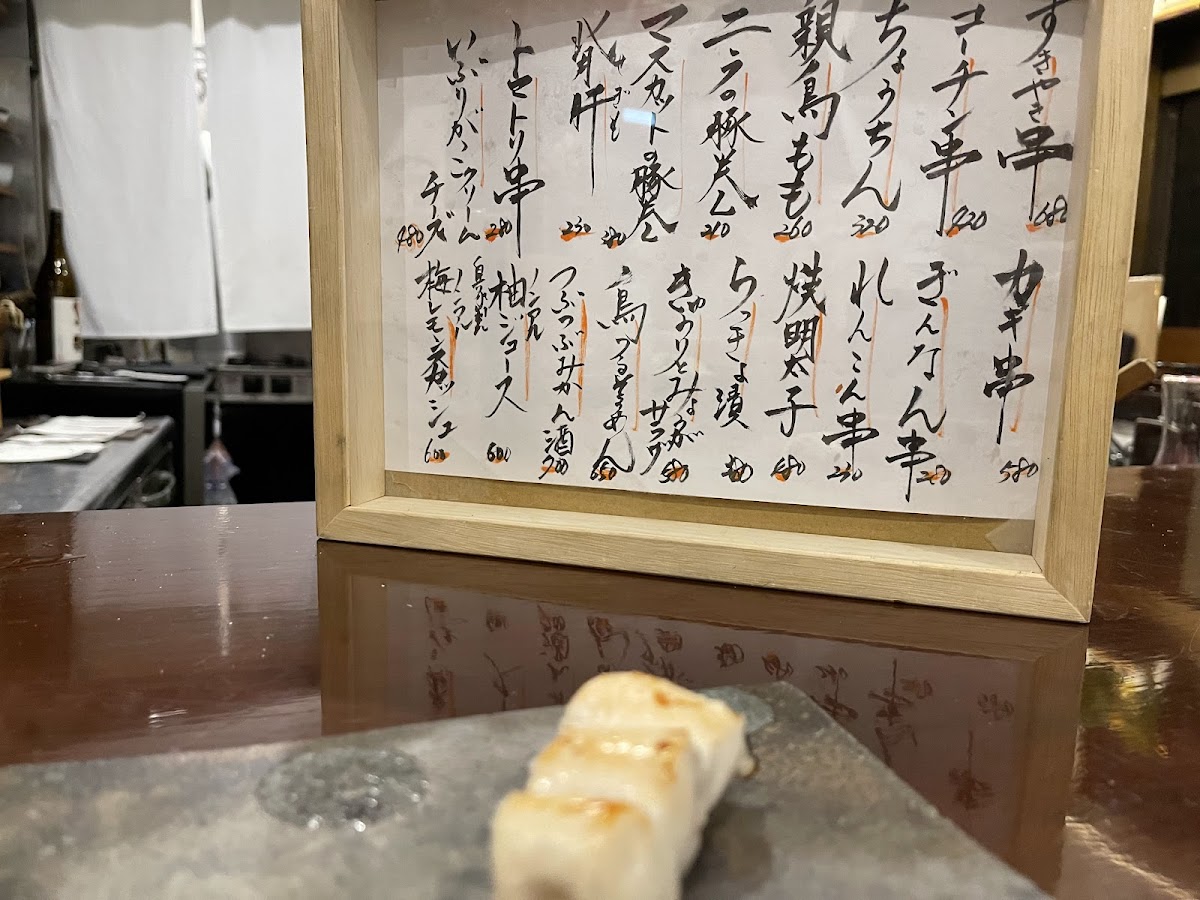 すきやき串 680
コーチン串 420
ちょうちん 320
親鳥もも 260
ニラの豚巻 210
マスカットの豚巻 280
背肝 せぎも 230
トマトリ串 280
いぶりがっこクリームチーズ 480
カキ串 580
ぎんなん串 280
れんこん串 230
焼明太子 480
らっきょ漬
きゅうりとみょうがサラダ 580
鳥つるそうめん 650
つぶつぶみかん酒
ノンアル 柚ジュース 600
自家製 ノンアル 梅レモンスカッシュ 600